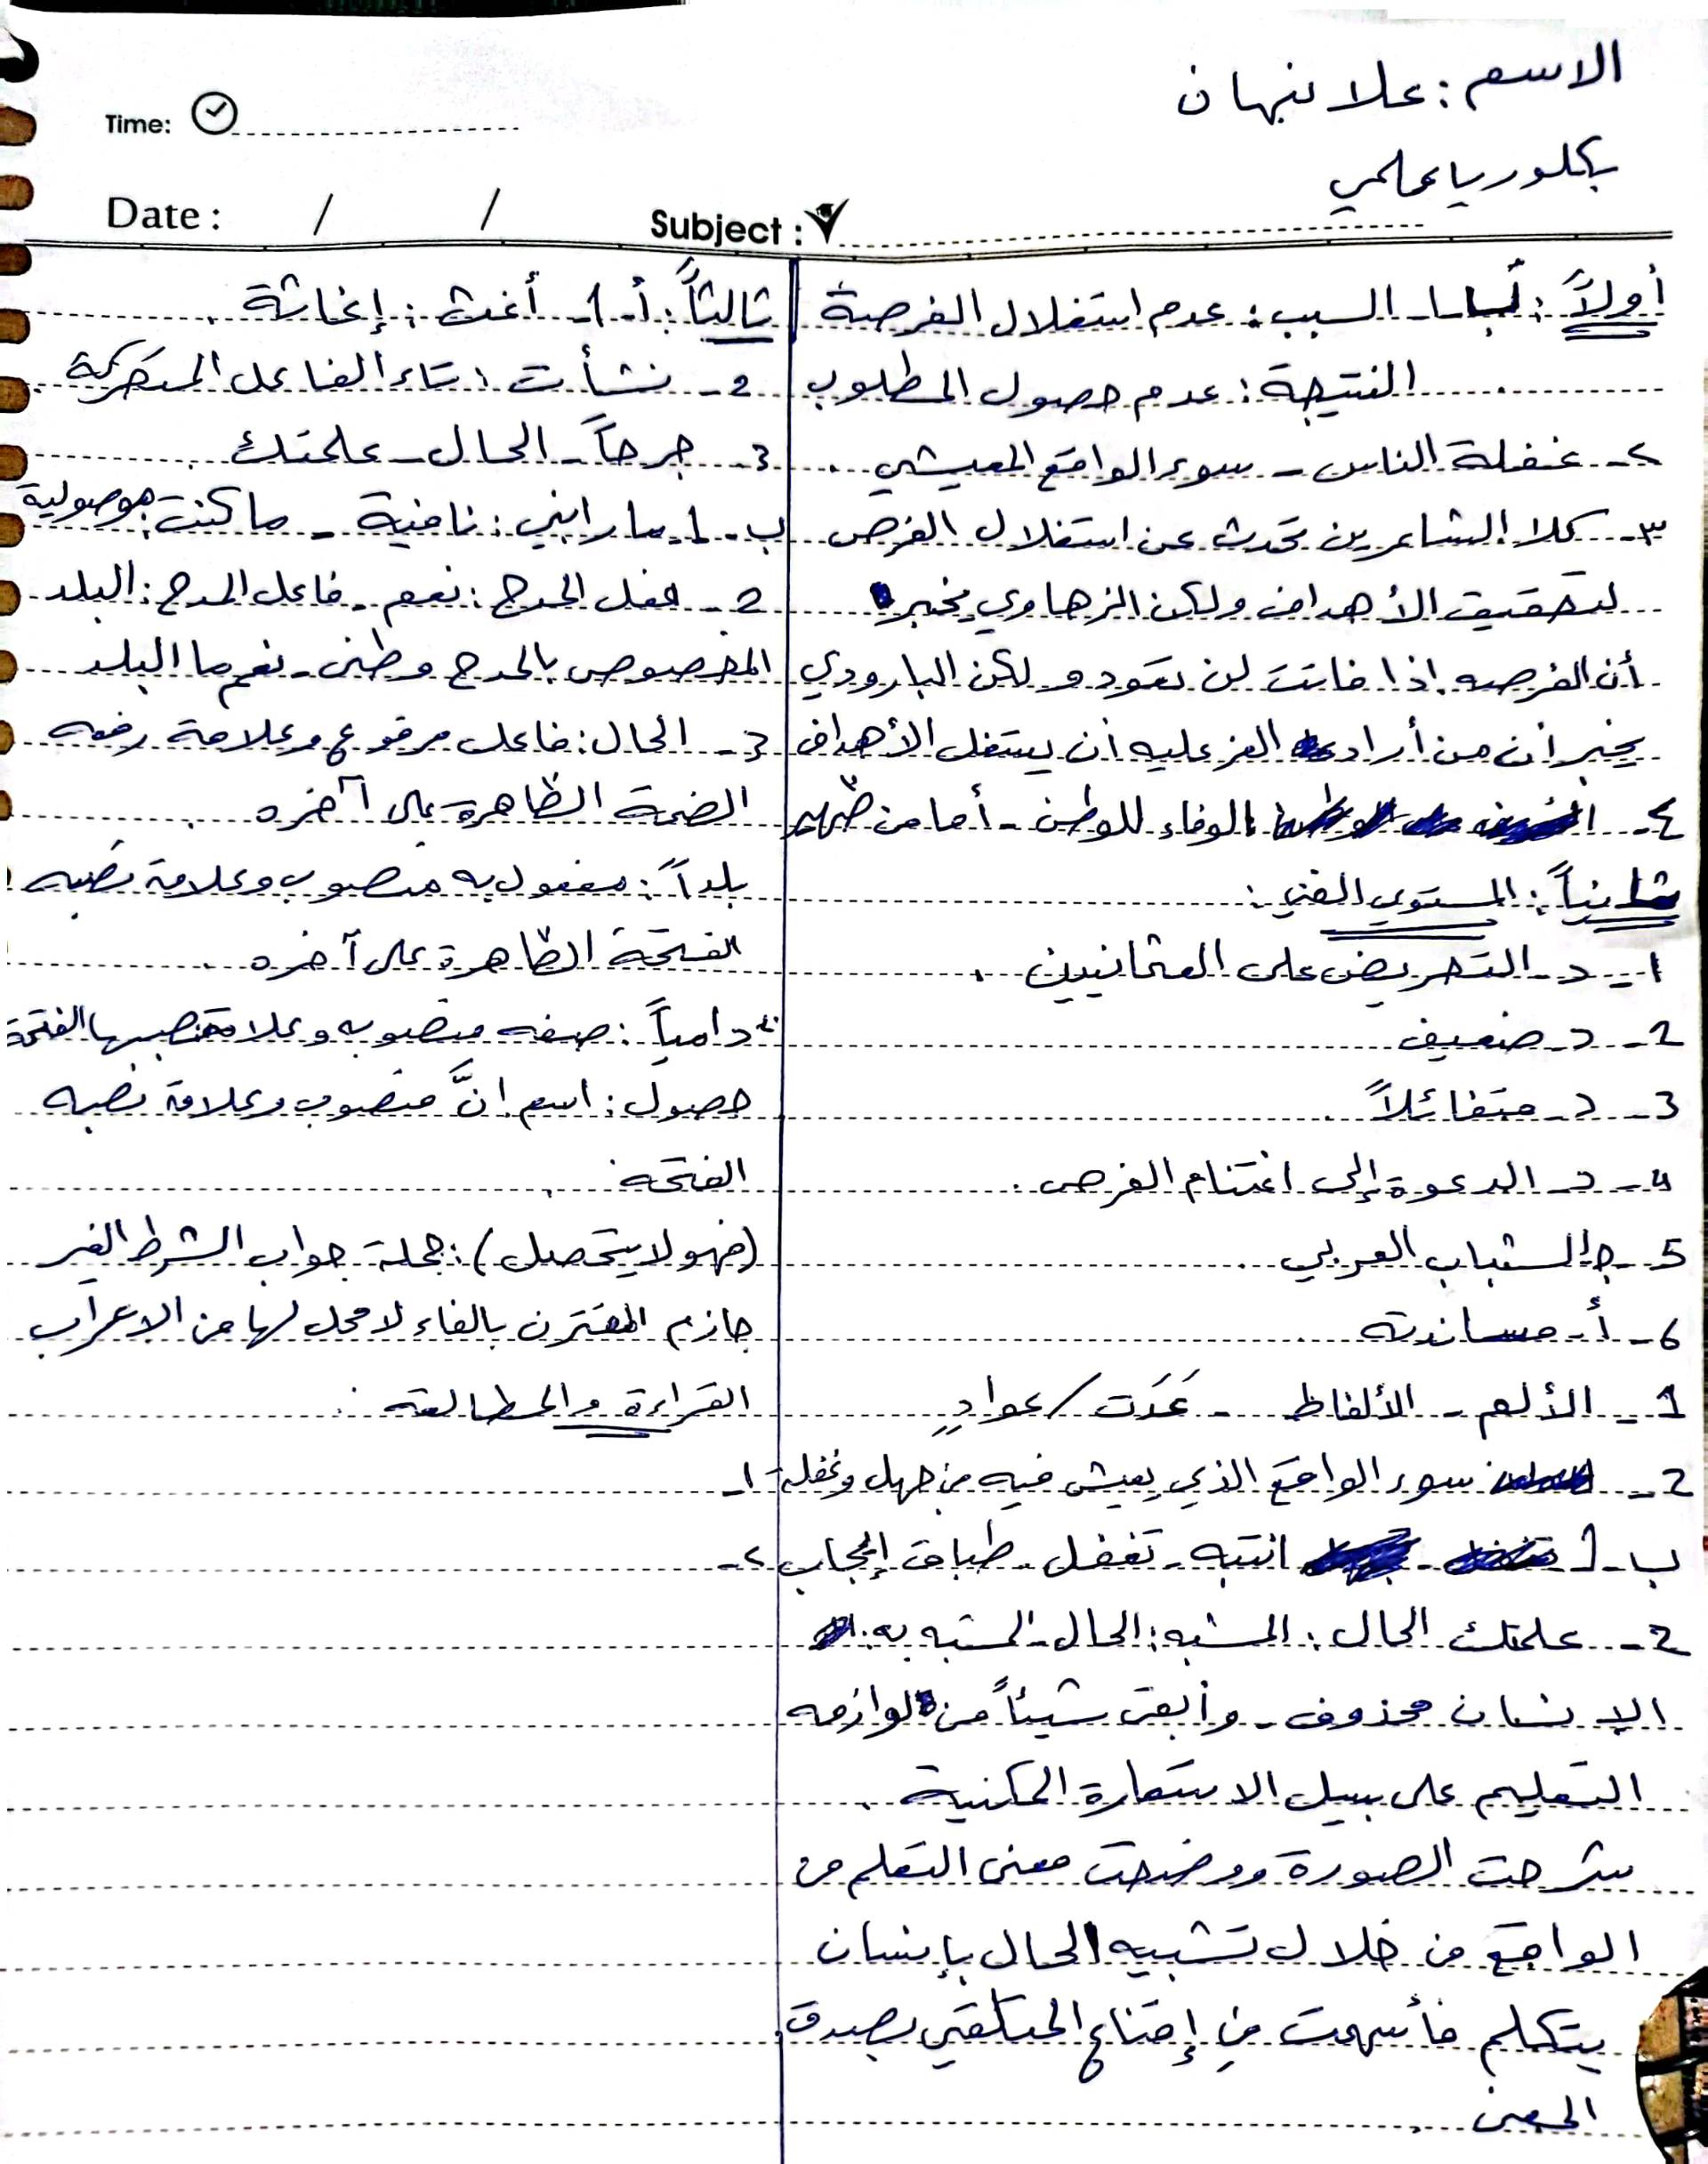 الاسم : علا نبهان
بكلوريا علمي
Time:
Date : / /
Subject :
أولاً : ب ا- السبب : عدم استغلال الفرصة
النتيجة : عدم حصول المطلوب
٢- غفلة الناس - سوء الواقع المعيشي .
٣- كلا الشاعرين تحدث عن استغلال الفرص
لتحقيق الأهداف ولكن الزهاوي يخبر
أن الفرصه اذا فاتت لن تعود و لكن البارودي
يخبر أن من أراد العز عليه أن يستغل الأهداف
٤- الوفاء للوطن - أما من
ثانياً : المستوى الفني :
1- د- التحريض على العثمانيين .
2- د- ضعيف
3- د- متفائلاً .
4- د- الدعوة إلى اغتنام الفرص .
5- ج- الشباب العربي .
6- أ- مساندته .
1- الألم - الألفاظ - عَدَت / عوادٍ
2- سوء الواقع الذي يعيش فيه من جهل وغفلة
ب- 1- انتبه - تغفل - طباق إيجاب
2- علمتك الحال : المشبه : الحال - المشبه به :
الإنسان محذوف - وأبقى شيئاً من لوازمه
التعليم على سبيل الاستعارة المكنية .
شرحت الصورة ووضحت معنى التعلم من
الواقع من خلال تشبيه الحال بإنسان
يتكلم فأسهمت في إقناع المتلقي بصدق
المعنى .
ثالثاً : أ- 1- أغث : إغاثة .
2- نشأت : تاء الفاعل المتحركة .
3- جرحاً - الحال - علمتك .
ب- 1- ما رابني : نافية - ما كنت : موصولية
2- فعل المدح : نعم - فاعل المدح : البلد
المخصوص بالمدح وطني - نعم ما البلد
3- الحال : فاعل مرفوع وعلامة رفعه
الضمة الظاهرة على آخره .
بلداً : مفعول به منصوب وعلامة نصبه
الفتحة الظاهرة على آخره .
دامياً : صفه منصوبه وعلامة نصبها الفتحة
حصول : اسم انَّ منصوب وعلامة نصبه
الفتحه .
(فهو لا يتحصل) : جملة جواب الشرط الغير
جازم المقترن بالفاء لا محل لها من الاعراب
القراءة والمطالعة :
١-
٢-